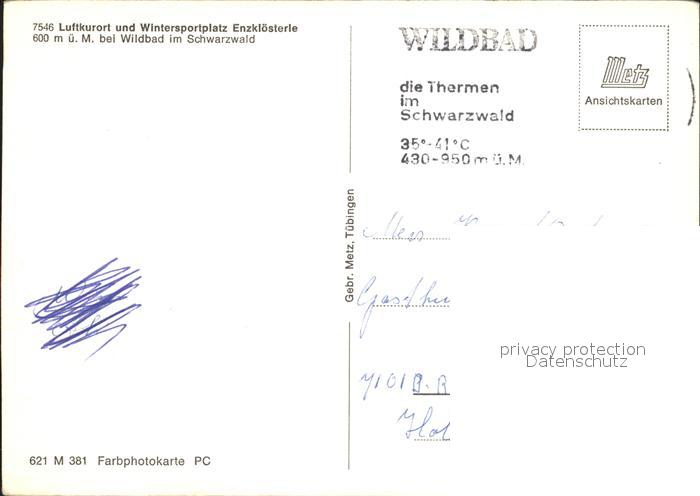 7546 Luftkurort und Wintersportplatz Enzklösterle
600 m ü. M. bei Wildbad im Schwarzwald
WILDBAD
die Thermen
im
Schwarzwald
35°-41°C
430-950 m ü. M.
Metz
Ansichtskarten
Gebr. Metz, Tübingen
7101
privacy protection
Datenschutz
621 M 381 Farbphotokarte PC